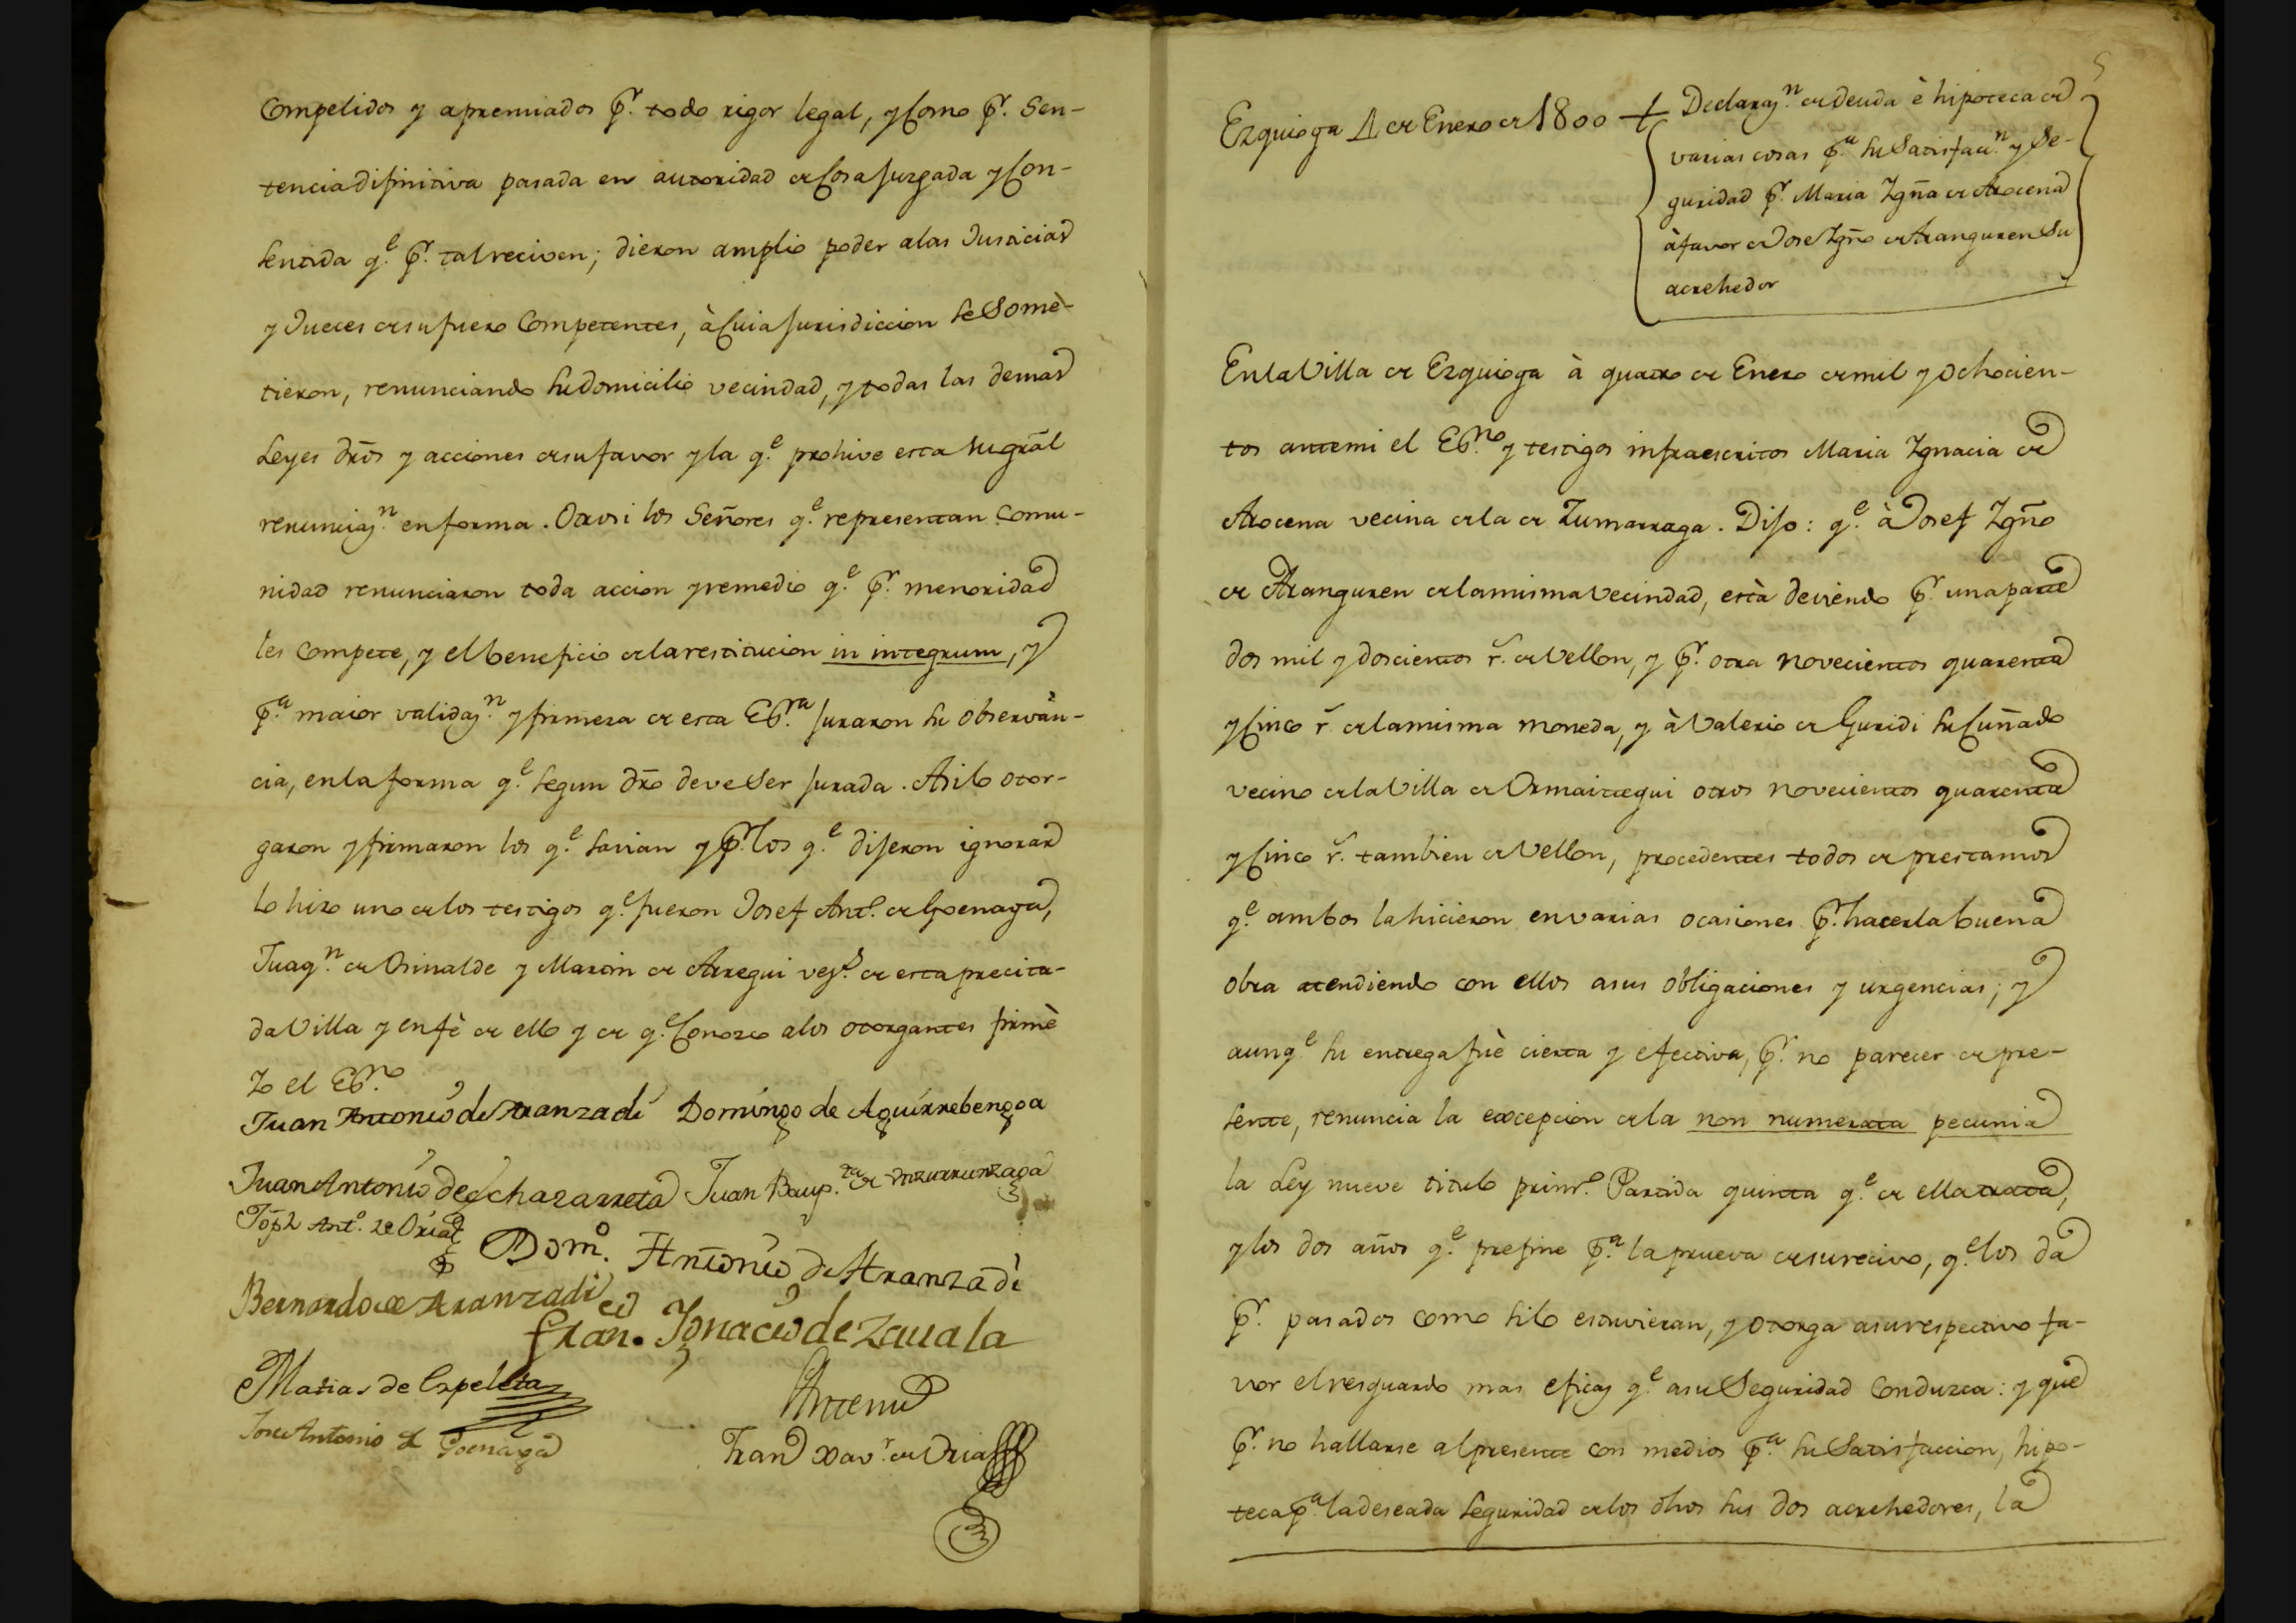 Compelidos y apremiados pr. todo rigor legal, y Como pr. Sen-
tencia difinitiva pasada en autoridad de Cosa Juzgada y Con-
sentida qe. pr. tal reciven; dieron amplio poder alas Justicias
y Jueces de su fuero Competentes, à Cuia Jurisdiccion se Some-
tieron, renunciando su domicilio vecindad, y todas las demas
Leyes dros y acciones de su favor y la qe. prohive esta su gral
renunciazn. en forma. Otrosi los Señores qe. representan Comu-
nidad renunciaron toda accion y remedio qe. pr. menoridad
les Compete, y el beneficio de la restitucion in integrum, y
pa. maior validazn. y firmeza de esta Essra. Juraron su observàn-
cia, en la forma qe. segun dro deve ser Jurada. Asi lo otor-
garon y firmaron los qe. savian y pr. los qe. dijeron ignorar
lo hizo uno de los testigos qe. fueron Josef Anto. de Goenaga,
Juaqn. de Orinalde y Martin de Arregui vezs. de esta precita-
da Villa y en fè de ello y de qe. Conozco alos otorgantes firmè
Yo el Essno.
Juan Antonio de Aranzadi Domingo de Aguirrebengoa
Juan Antonio de Echazarreta Juan Baupta. de Inzurrunzaga
Joph Anto. de Oria
Domo. Antonio de Aranzadi
Bernardo de Aranzadi
Fran. Ignacio de Zauala
Matias de Ezpeleta
Antemi
Jose Antonio de Goenaga
Fran Xavr. de Oria
5
Ezquioga 4 de Enero de 1800
Declarazn. de deuda è hipoteca de
varias cosas pa. su Satisfacn. y Se-
guridad pr. Maria Igña de Arocena
à favor de Jose Igño de Aranguren Su
acrehedor
En la Villa de Ezquioga à quatro de Enero de mil y ochocien-
tos antemi el Essno. y testigos infraescritos Maria Ignacia de
Arocena vecina de la de Zumarraga. Dijo: qe. à Josef Igño
de Aranguren de la misma vecindad, està deviendo pr. una parte
dos mil y doscientos rs. de Vellon, y pr. otra novecientos quarenta
y Cinco rs. de la misma moneda, y à Valerio de Guridi su Cuñado
vecino de la Villa de Ormaiztegui otros novecientos quarenta
y Cinco rs. tambien de Vellon, procedentes todos de prestamos
qe. ambos la hicieron en varias ocasiones pr. hacerla buena
obra atendiendo con ellos asus obligaciones y urgencias; y
aunqe. su entrega fuè cierta y efectiva, pr. no parecer de pre-
sente, renuncia la excepcion de la non numerata pecunia
la Ley nueve titulo primro. Partida quinta qe. de ella trata,
y los dos años qe. prefine pa. la prueva de su recivo, qe. los da
pr. pasados como si lo estuvieran, y otorga asu respectivo fa-
vor el resguardo mas eficaz qe. asu Seguridad Conduzca: y que
pr. no hallarse al presente con medios pa. su Satisfaccion, hipo-
teca pa. la deseada seguridad de los dhos sus dos acrehedores, la